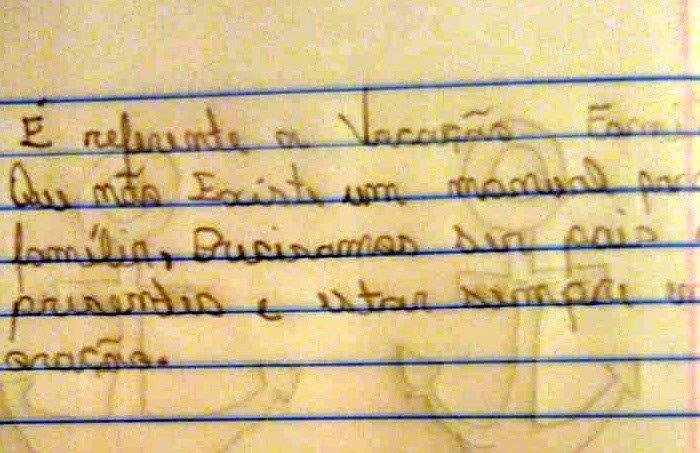 É referente a Vocação Fami
Que não Existe um manual para
família, Precisamos ser pais
presentes e estar sempre e
oração.